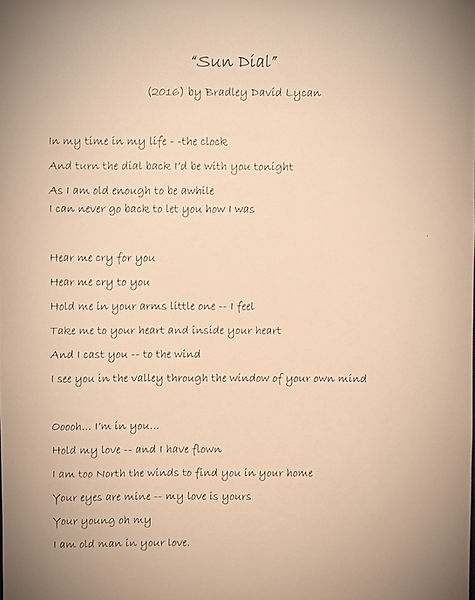 “Sun Dial”
(2016) by Bradley David Lycan
In my time in my life - -the clock
And turn the dial back I'd be with you tonight
As I am old enough to be awhile
I can never go back to let you how I was
Hear me cry for you
Hear me cry to you
Hold me in your arms little one -- I feel
Take me to your heart and inside your heart
And I cast you -- to the wind
I see you in the valley through the window of your own mind
Ooooh... I'm in you...
Hold my love -- and I have flown
I am too North the winds to find you in your home
Your eyes are mine -- my love is yours
Your young oh my
I am old man in your love.